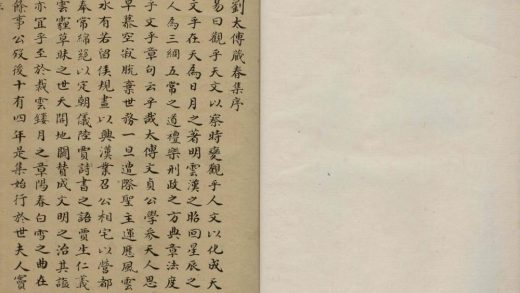 劉太傅藏春集序
易曰觀乎天文以察時變觀乎人文以化成天
文乎在天為日月之著明雲漢之昭回星辰之
人為三綱五常之道禮樂刑政之方典章法度
乎文乎章句云乎哉太傅文貞公學參天人思
早慕空寂脫棄世務一旦遭際聖主運應風雲
水有若留侯規畫以興漢業召公相宅以營都
奉常綿蕝以定朝儀陸賈詩書之語賈生仁義
雲龍草昧之世天開地闢贊成文明之治其謚
亦宜乎至於裁雲鏤月之章陽春白雪之曲在
餘事公歿後十有四年是集始行於世夫人竇